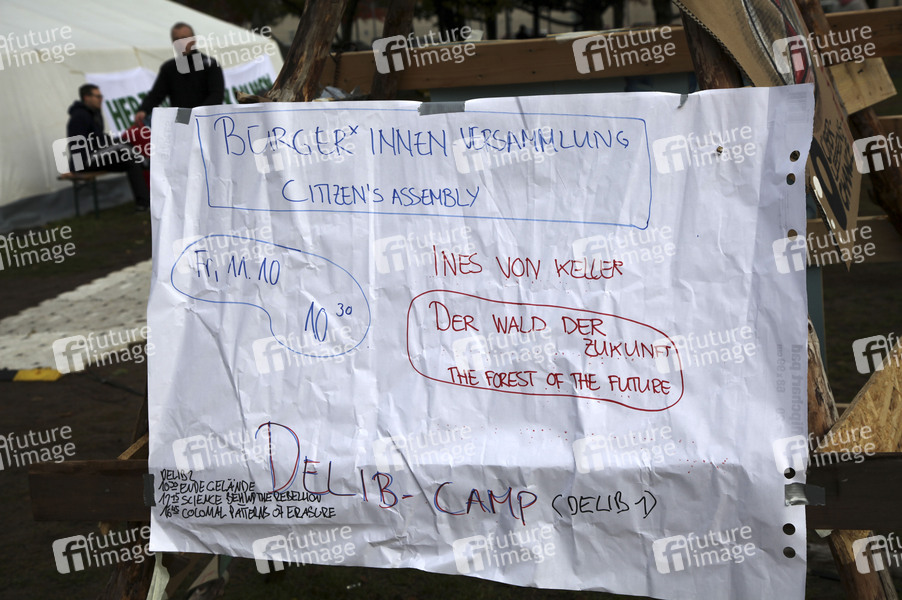 BÜRGER*INNEN VERSAMMLUNG
CITIZEN'S ASSEMBLY
Fr, 11.10
10³⁰
INES VON KELLER
DER WALD DER
ZUKUNFT
THE FOREST OF THE FUTURE
DELIB-CAMP (DELIB 1)
DELIB 2
10³⁰ ENDE GELÄNDE
SCIENCE BEHIND THE REBELLION
COLONIAL PATTERNS OF ERASURE
future image